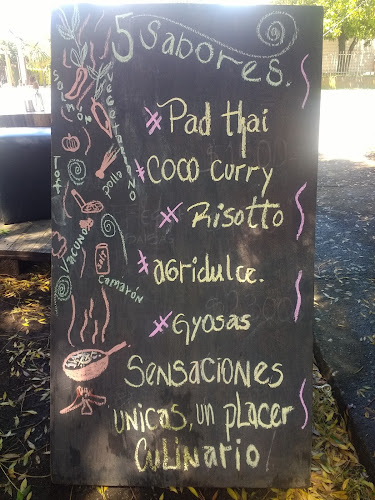 5 Sabores.
# Pad thai
# COCO curry
# Risotto
# agridulce.
# Gyosas
SENSACIONES
UNICAS, UN pLACER
CULINARIO
SALMON
VEGETARIANO
pollo
TOFU
VACUNO
CAMARÓN